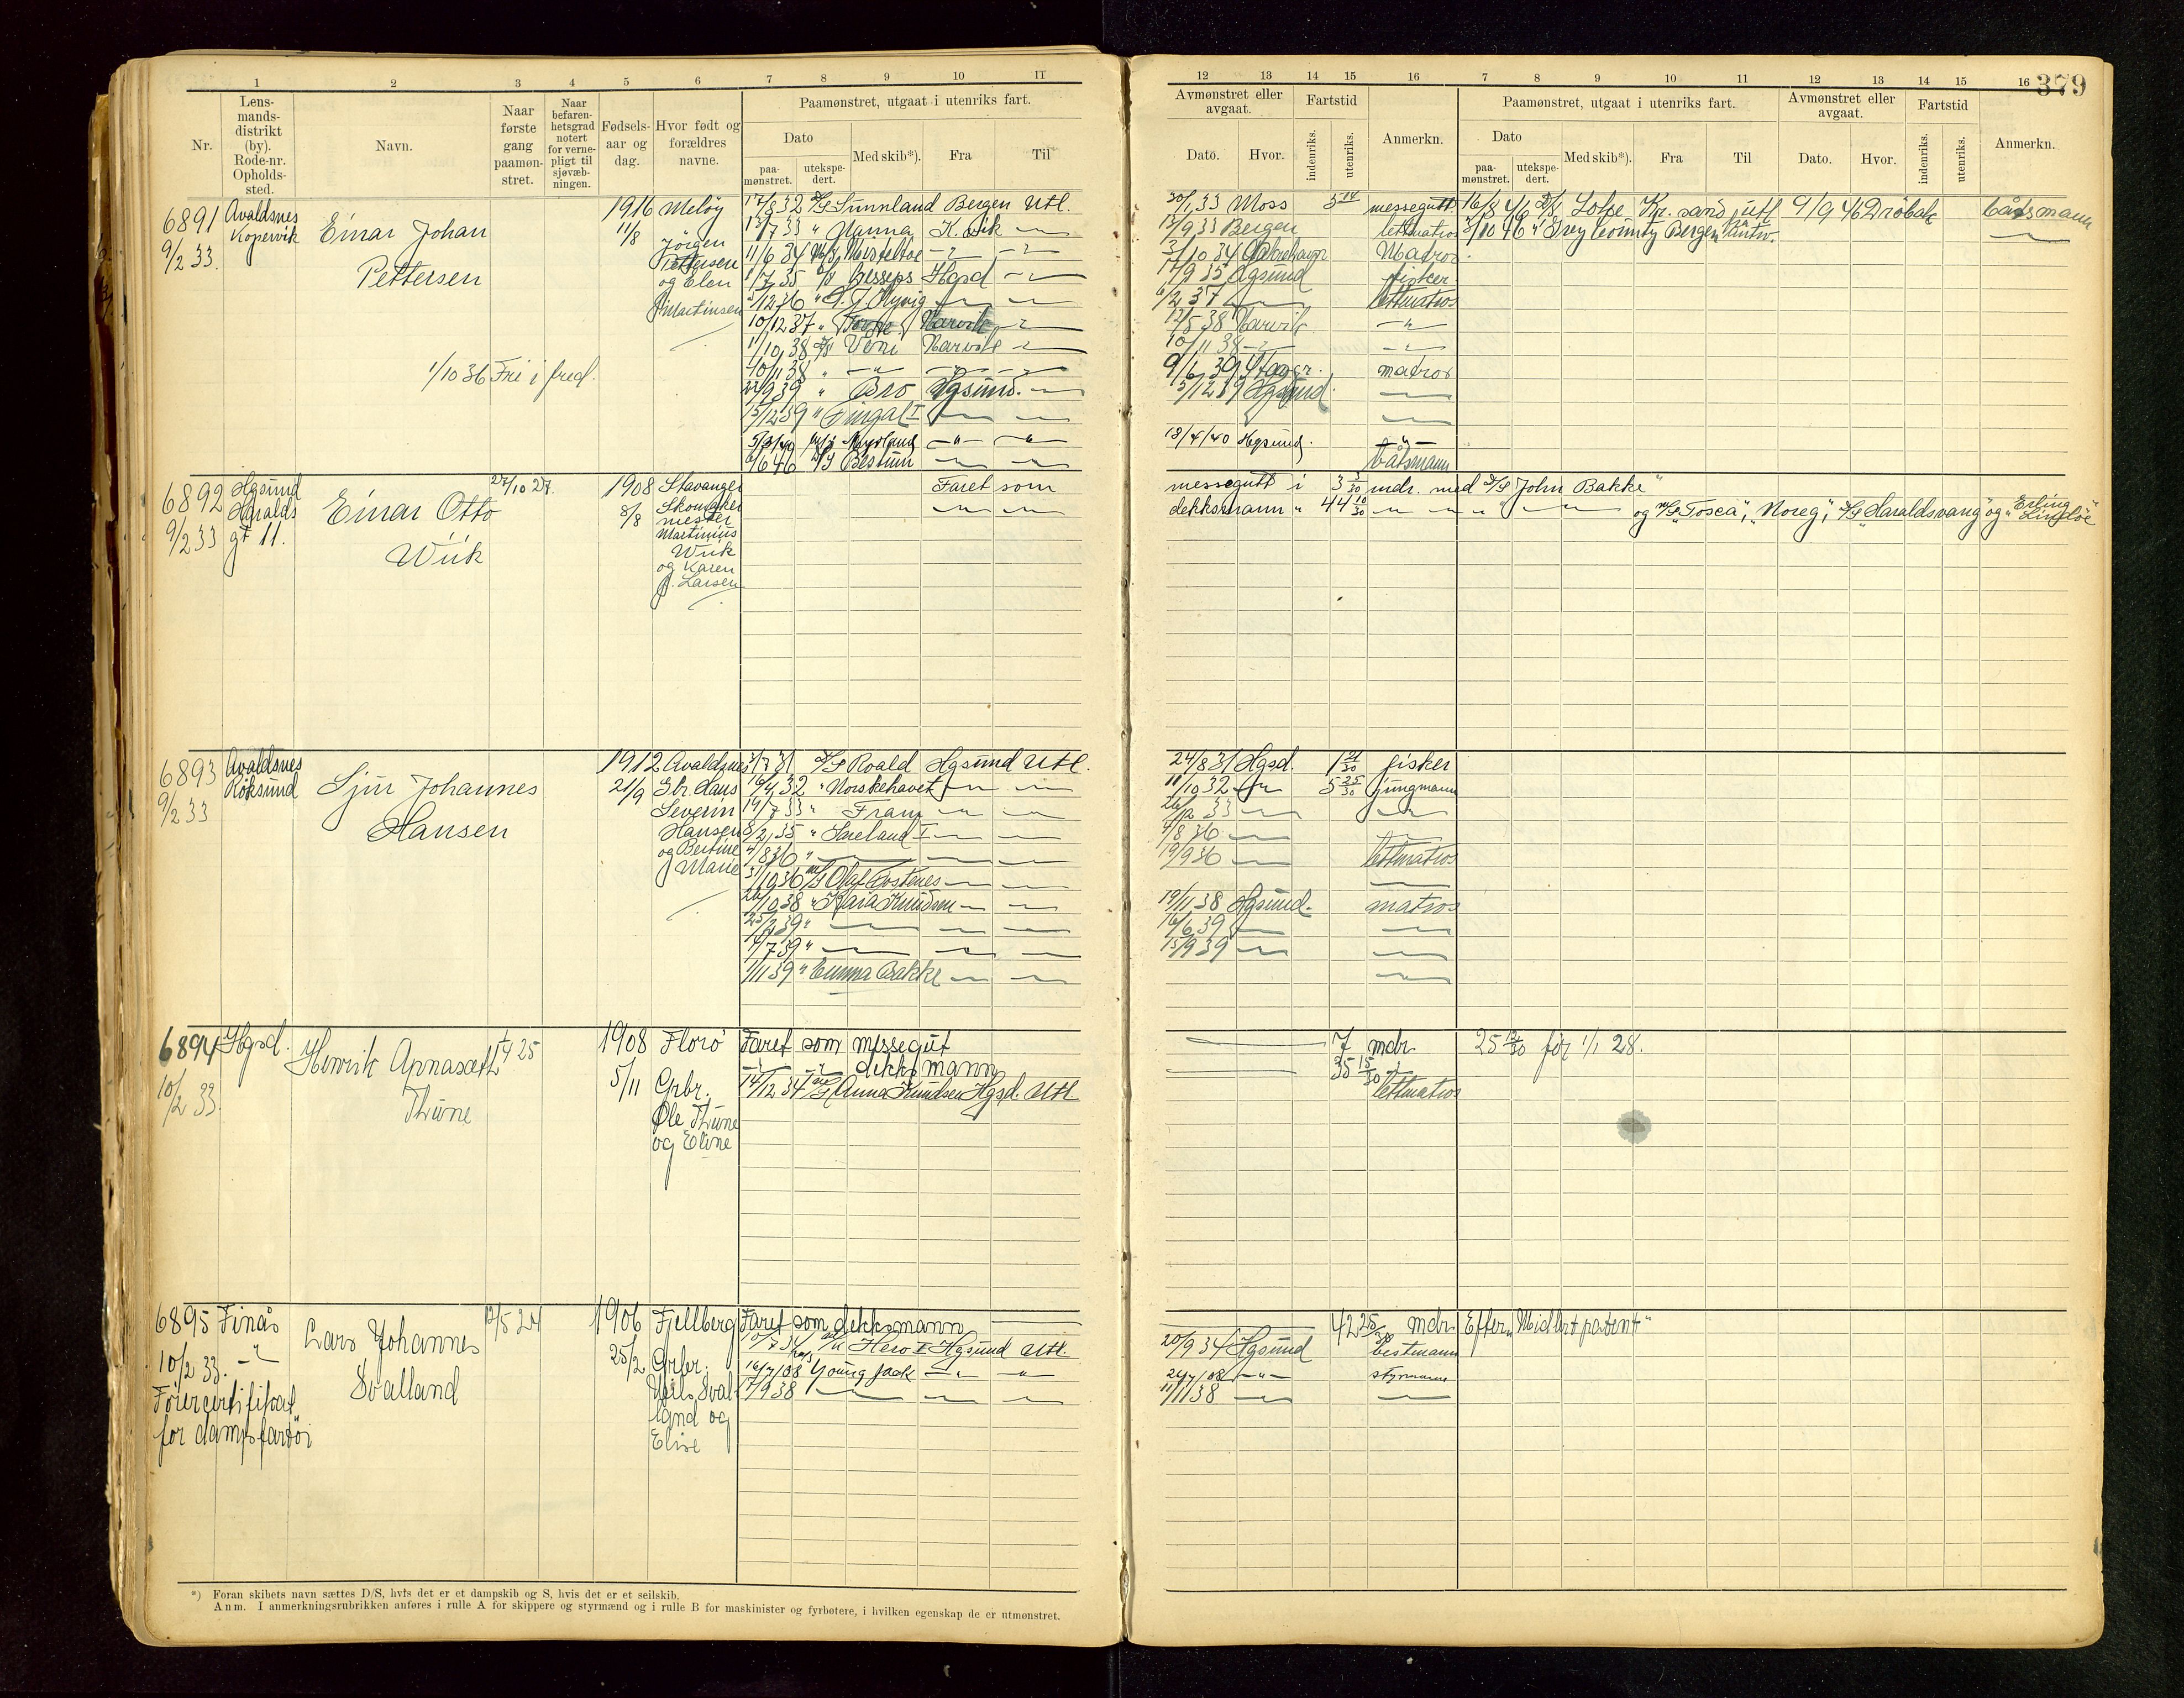 1 2 3 4 5 6 7 8 9 10 11
12 13 14 15 16 7 8 9 10 11 12 13 14 15 16 379
Nr.
Lens-
mands-
distrikt
(by).
Rode-nr.
Opholds-
sted.
Navn.
Naar
første
gang
paamøn-
stret.
Naar
befaren-
hetsgrad
notert
for verne-
pligt til
sjøvæb-
ningen.
Fødsels-
aar og
dag.
Hvor født og
forældres
navne.
Paamønstret, utgaat i utenriks fart.
Dato
paa-
mønstret.
utekspe-
dert.
Med skib*).
Fra
Til
Avmønstret eller
avgaat.
Dato.
Hvor.
Fartstid
indenriks.
utenriks.
Anmerkn.
Paamønstret, utgaat i utenriks fart.
Dato
paa-
mønstret.
utekspe-
dert.
Med skib*).
Fra
Til
Avmønstret eller
avgaat.
Dato.
Hvor.
Fartstid
indenriks.
utenriks.
Anmerkn.
6891
9/2 33.
Avaldsnes
Kopervik
Einar Johan
Pettersen
1/10 36 Fri i fred.
1916
11/8
Meløy
Jørgen
Pettersen
og Elen
Martinsen
17/8 32 D/S Sunnland Bergen Utl.
13/7 33 " Nanna K.vik
11/6 34 M/S
1/7 35 Hgsd
10/12 37 " Narvik
1/10 38 D/S Veni Narvik
10/11 38 "
22/9 39 " Bro Hgsund.
15/12 39 "
5/3/40 M/S
6/6 46 D/S Bestum
20/1 33 Moss 5 messegutt
15/9 33 Bergen lettmatros
3/10 34 Matros
17/9 35 Hgsund fisker
6/2 37 lettmatros
12/5 38 Narvik
10/11 38
9/6 39 matros
15/12 39 Hgsund.
18/4/40 Hgsund.
båtsmann
16/8 46 D/S Lotse Kr. sand utl 9/9 46 Drøbak båtsmann
3/10 46 " Grey County Bergen
6892
9/2 33
Hgsund
Haralds
gt 11.
Einar Otto
Wiik
27/10 27.
1908
8/8
Stavanger
Skomaker
mester
Martinius
Wiik
og Karen
J. Larsen
Faret som messegutt i 3 3/30 mdr. med D/S "John Bakke"
dekksmann " 44 10/30 og M/S "Tosca", "Noreg", D/S "Haraldsvang" og "Erling
Lindøe"
6893
9/2 33
Avaldsnes
Røksund
Sjur Johannes
Hansen
1912
21/9
Avaldsnes
Gbr. Hans
Severin
Hansen
og Bertine
Marie
3/7 31 D/S Roald Hgsund Utl.
16/4 32 " Norskehavet
19/7 33 " Fram
8/2 35 "
4/8 36 "
31/10 36 M/S Olaf Bostenes
26/10 38 " Kaia Knudsen
25/2 39 "
14/7 39 "
1/11 39 " Emma Bakke
24/8 31 Hgsd. 1 21/30 fisker
11/10 32 5 25/30 jungmann
26/2 33
4/8 36
19/9 36 lettmatros
19/11 38 Hgsund. matros
16/6 39
15/9 39
6894
10/2 33.
Hgsd.
Henrik Apnasæth
Thune
1/4 25
1908
5/11
Florø
Gbr.
Ole Thune
og Eline
Faret som messegut
dekksmann
14/12 34 M/S Anna Knudsen Hgsd. Utl.
7 mdr. 25 12/30 før 1/1 28.
35 15/30
lettmatros
6895
10/2 33.
Finås
Førercertifikat
for dampfartøi
Lars Johannes
Svalland
12/5 24
1906
25/2
Fjellberg
Grbr.
Nils Sval
land og
Elise
Faret som dekksmann
10/7 34 M/K Hero I Hgsund Utl.
16/4/08 Young Jack
17/9 38
42 25/30 mdr. Eftern. "Midlert patent"
20/9 34 Hgsund bestmann
24/7/08 styrmann
11/11 38
*) Foran skibets navn sættes D/S, hvis det er et dampskib og S, hvis det er et seilskib.
Anm. I anmerkningsrubrikken anføres i rulle A for skippere og styrmænd og i rulle B for maskinister og fyrbøtere, i hvilken egenskap de er utmønstret.